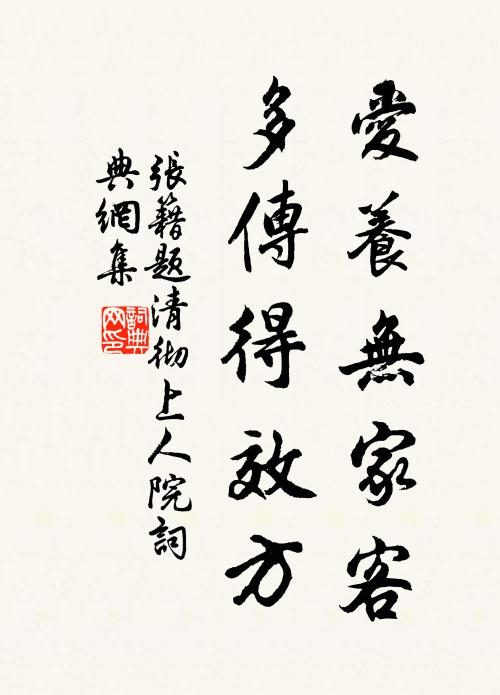 愛養無家客
多傳得效方
張籍題清彻上人院詞
典網集
詞典
网印